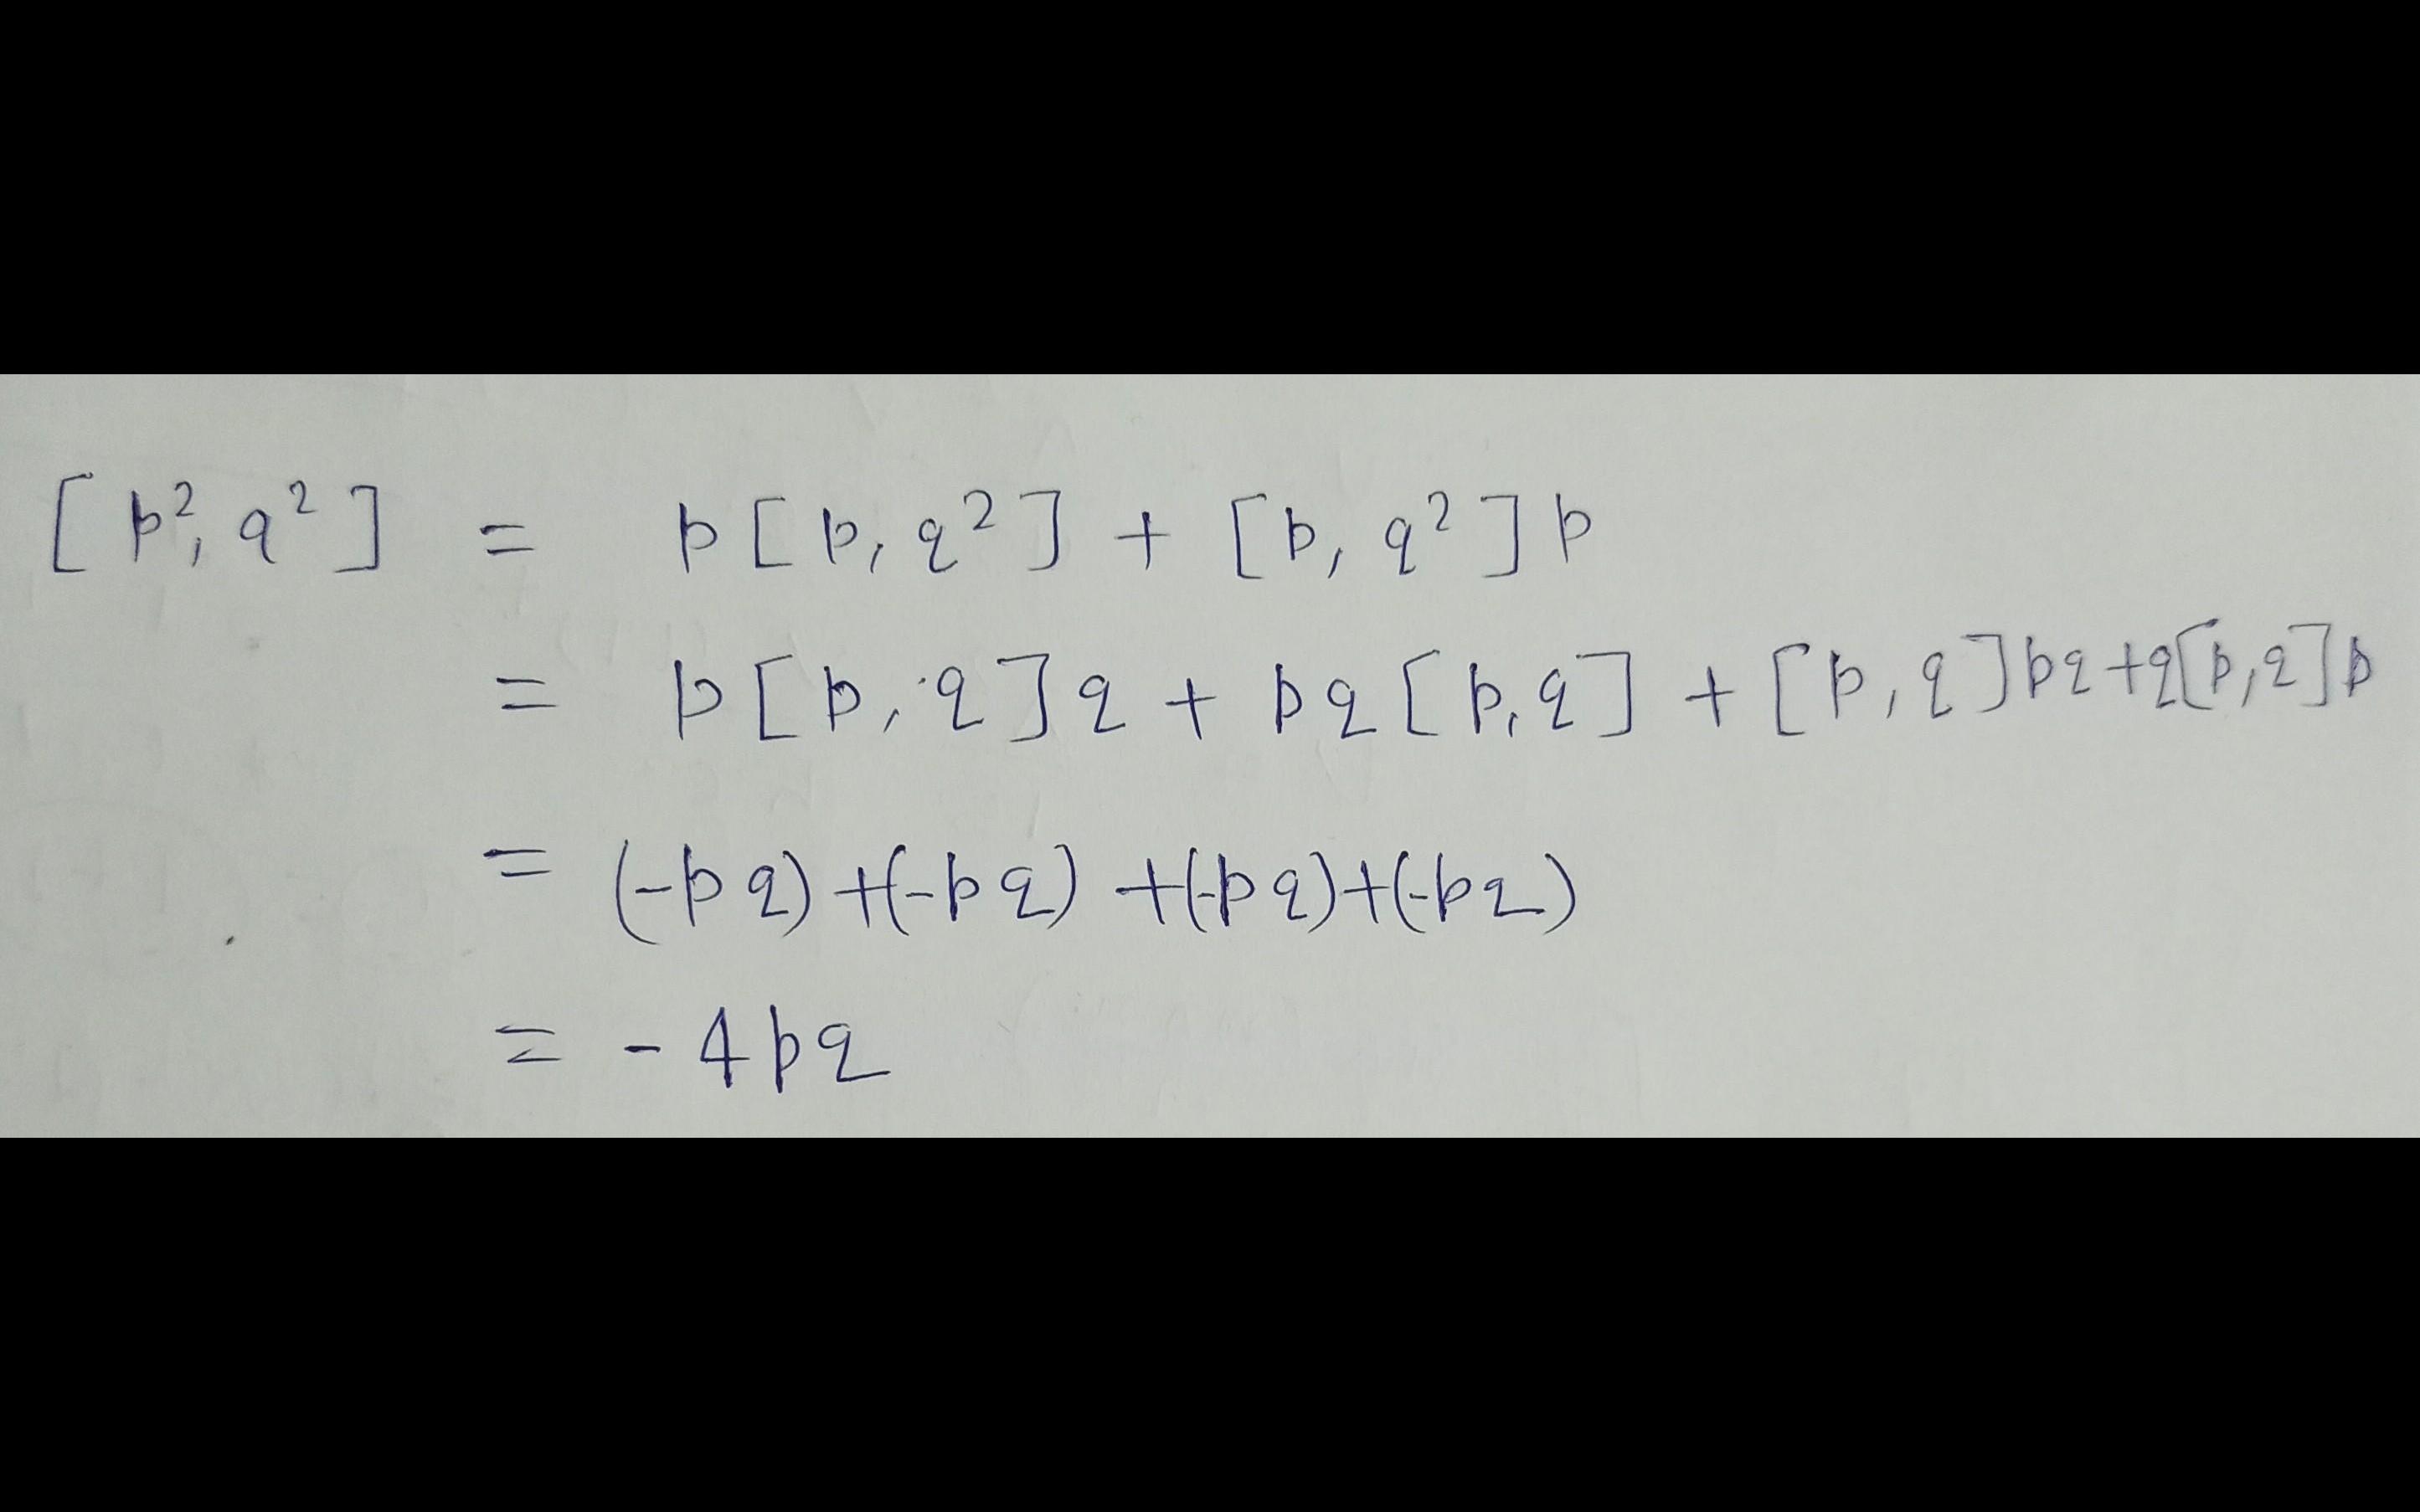 [p², q²] = p[p, q²] + [p, q²]p
= p[p, q]q + pq[p, q] + [p, q]pq + q[p, q]p
= (-pq) + (-pq) + (-pq) + (-pq)
= -4pq